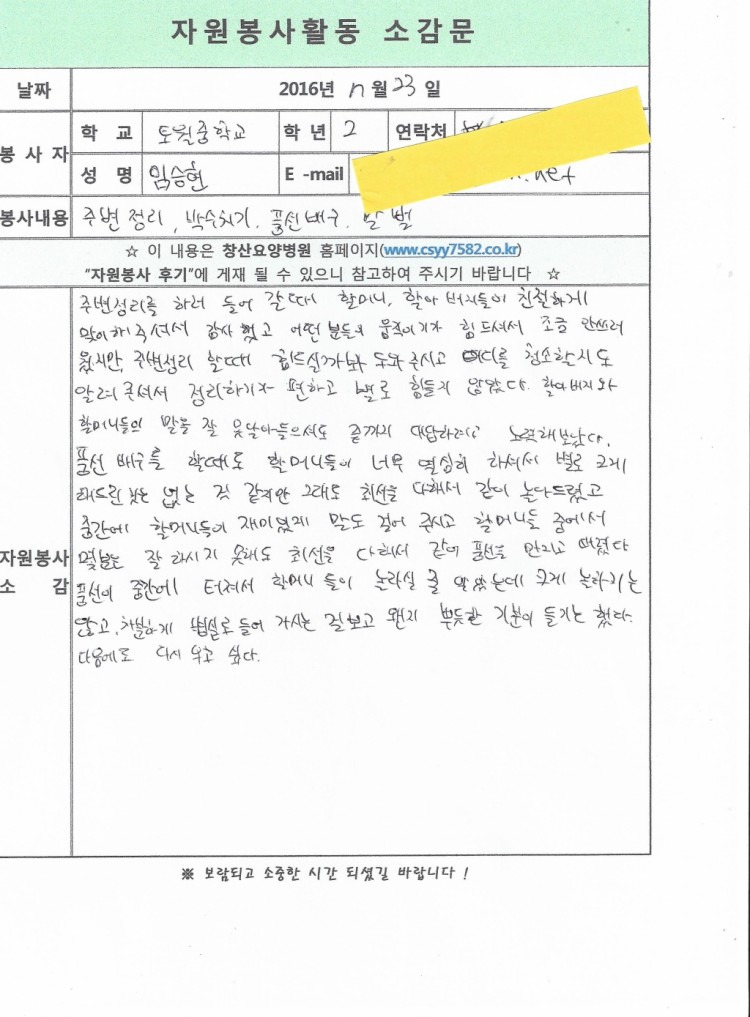 자원봉사활동 소감문
날짜 2016년 n월 23일
봉사자
학 교 토월중학교 학 년 2 연락처
성 명 임승현 E -mail .net
봉사내용 주변 정리, 박수치기, 풍선배구,
☆ 이 내용은 창산요양병원 홈페이지(www.csyy7582.co.kr)
"자원봉사 후기"에 게재 될 수 있으니 참고하여 주시기 바랍니다 ☆
자원봉사
소 감
주변정리를 하러 들어 갈때 할머니, 할아버지들이 친절하게
맞이해주셔서 감사했고 어떤 분들의 움직이기가 힘드셔서 조금 안쓰러
웠지만, 주변정리 할때 힘드실까봐 도와주시고 어디를 청소할지도
알려주셔서 정리하기가 편하고 별로 힘들지 않았다. 할아버지와
할머니들의 말을 잘 못알아들으셔도 끝까지 대답하려고 노력해보았다.
풍선 배구를 할때도 할머니들이 너무 열심히 하셔서 별로 크게
해드린 것은 없는 것 같지만 그래도 최선을 다해서 같이 놀아드렸고
중간에 할머니들이 재미있게 말도 걸어 주시고 할머니들 중에서
몇분은 잘 하시지 못해도 최선을 다해서 같이 풍선을 만지고
풍선이 중간에 터져서 할머니 들이 놀라실 줄 알았는데 크게 놀라지는
않고, 차분하게 병실로 들어 가시는 걸보고 왠지 뿌듯한 기분이 들기는 했다.
다음에도 다시 오고 싶다.
※ 보람되고 소중한 시간 되셨길 바랍니다 !